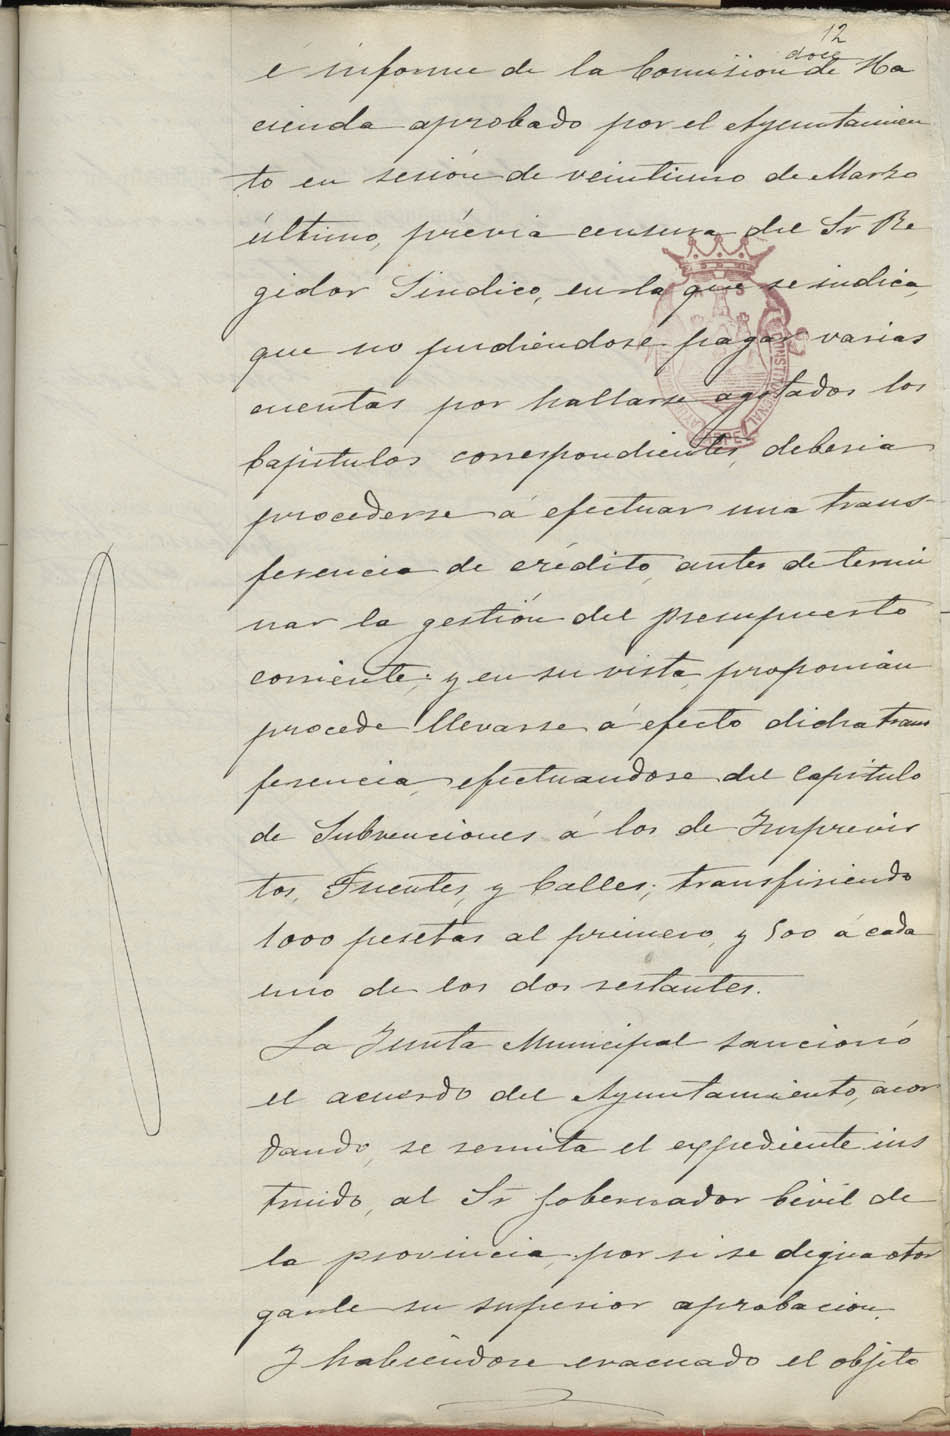 12
doce
é informe de la Comisión de Ha
cienda aprobado por el Ayuntamien
to en sesión de veintiuno de Marzo
último, prévia censura del Sr Re
gidor Sindico, en la que se indica,
que no pudiéndose pagar varias
cuentas por hallarse agotados los
Capitulos correspondientes, deberia
procederse á efectuar una trans-
ferencia de crédito, antes de termi
nar la gestión del presupuesto
corriente; y en su vista, proponian
procede llevarse á efecto dicha trans
ferencia, efectuandose del Capitulo
de Subvenciones á los de Imprevis
tos, Fuentes, y Calles; transfiriendo
1000 pesetas al primero, y 500 á cada
uno de los dos restantes.
La Junta Municipal sancionó
el acuerdo del Ayuntamiento, acor
dando, se remita el expediente ins
truido, al Sr Gobernador Civil de
la provincia, por si se digna otor
garle su superior aprobacion.
Y habiéndose evacuado el objeto